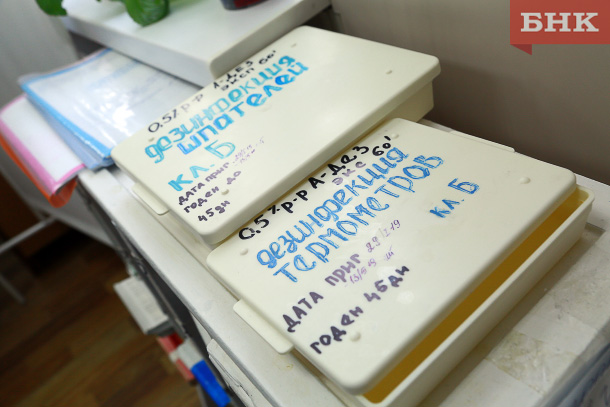 БНК
0.5% р-р А-ДЕЗ
эксп 60'
дезинфекция
шпателей
кл. Б
ДАТА приг
ГОДЕН ДО
45 дн
0.5% р-р А-ДЕЗ
экс 60'
дезинфекция
термометров
кл. Б
ДАТА приг
ГОДЕН 45 дн